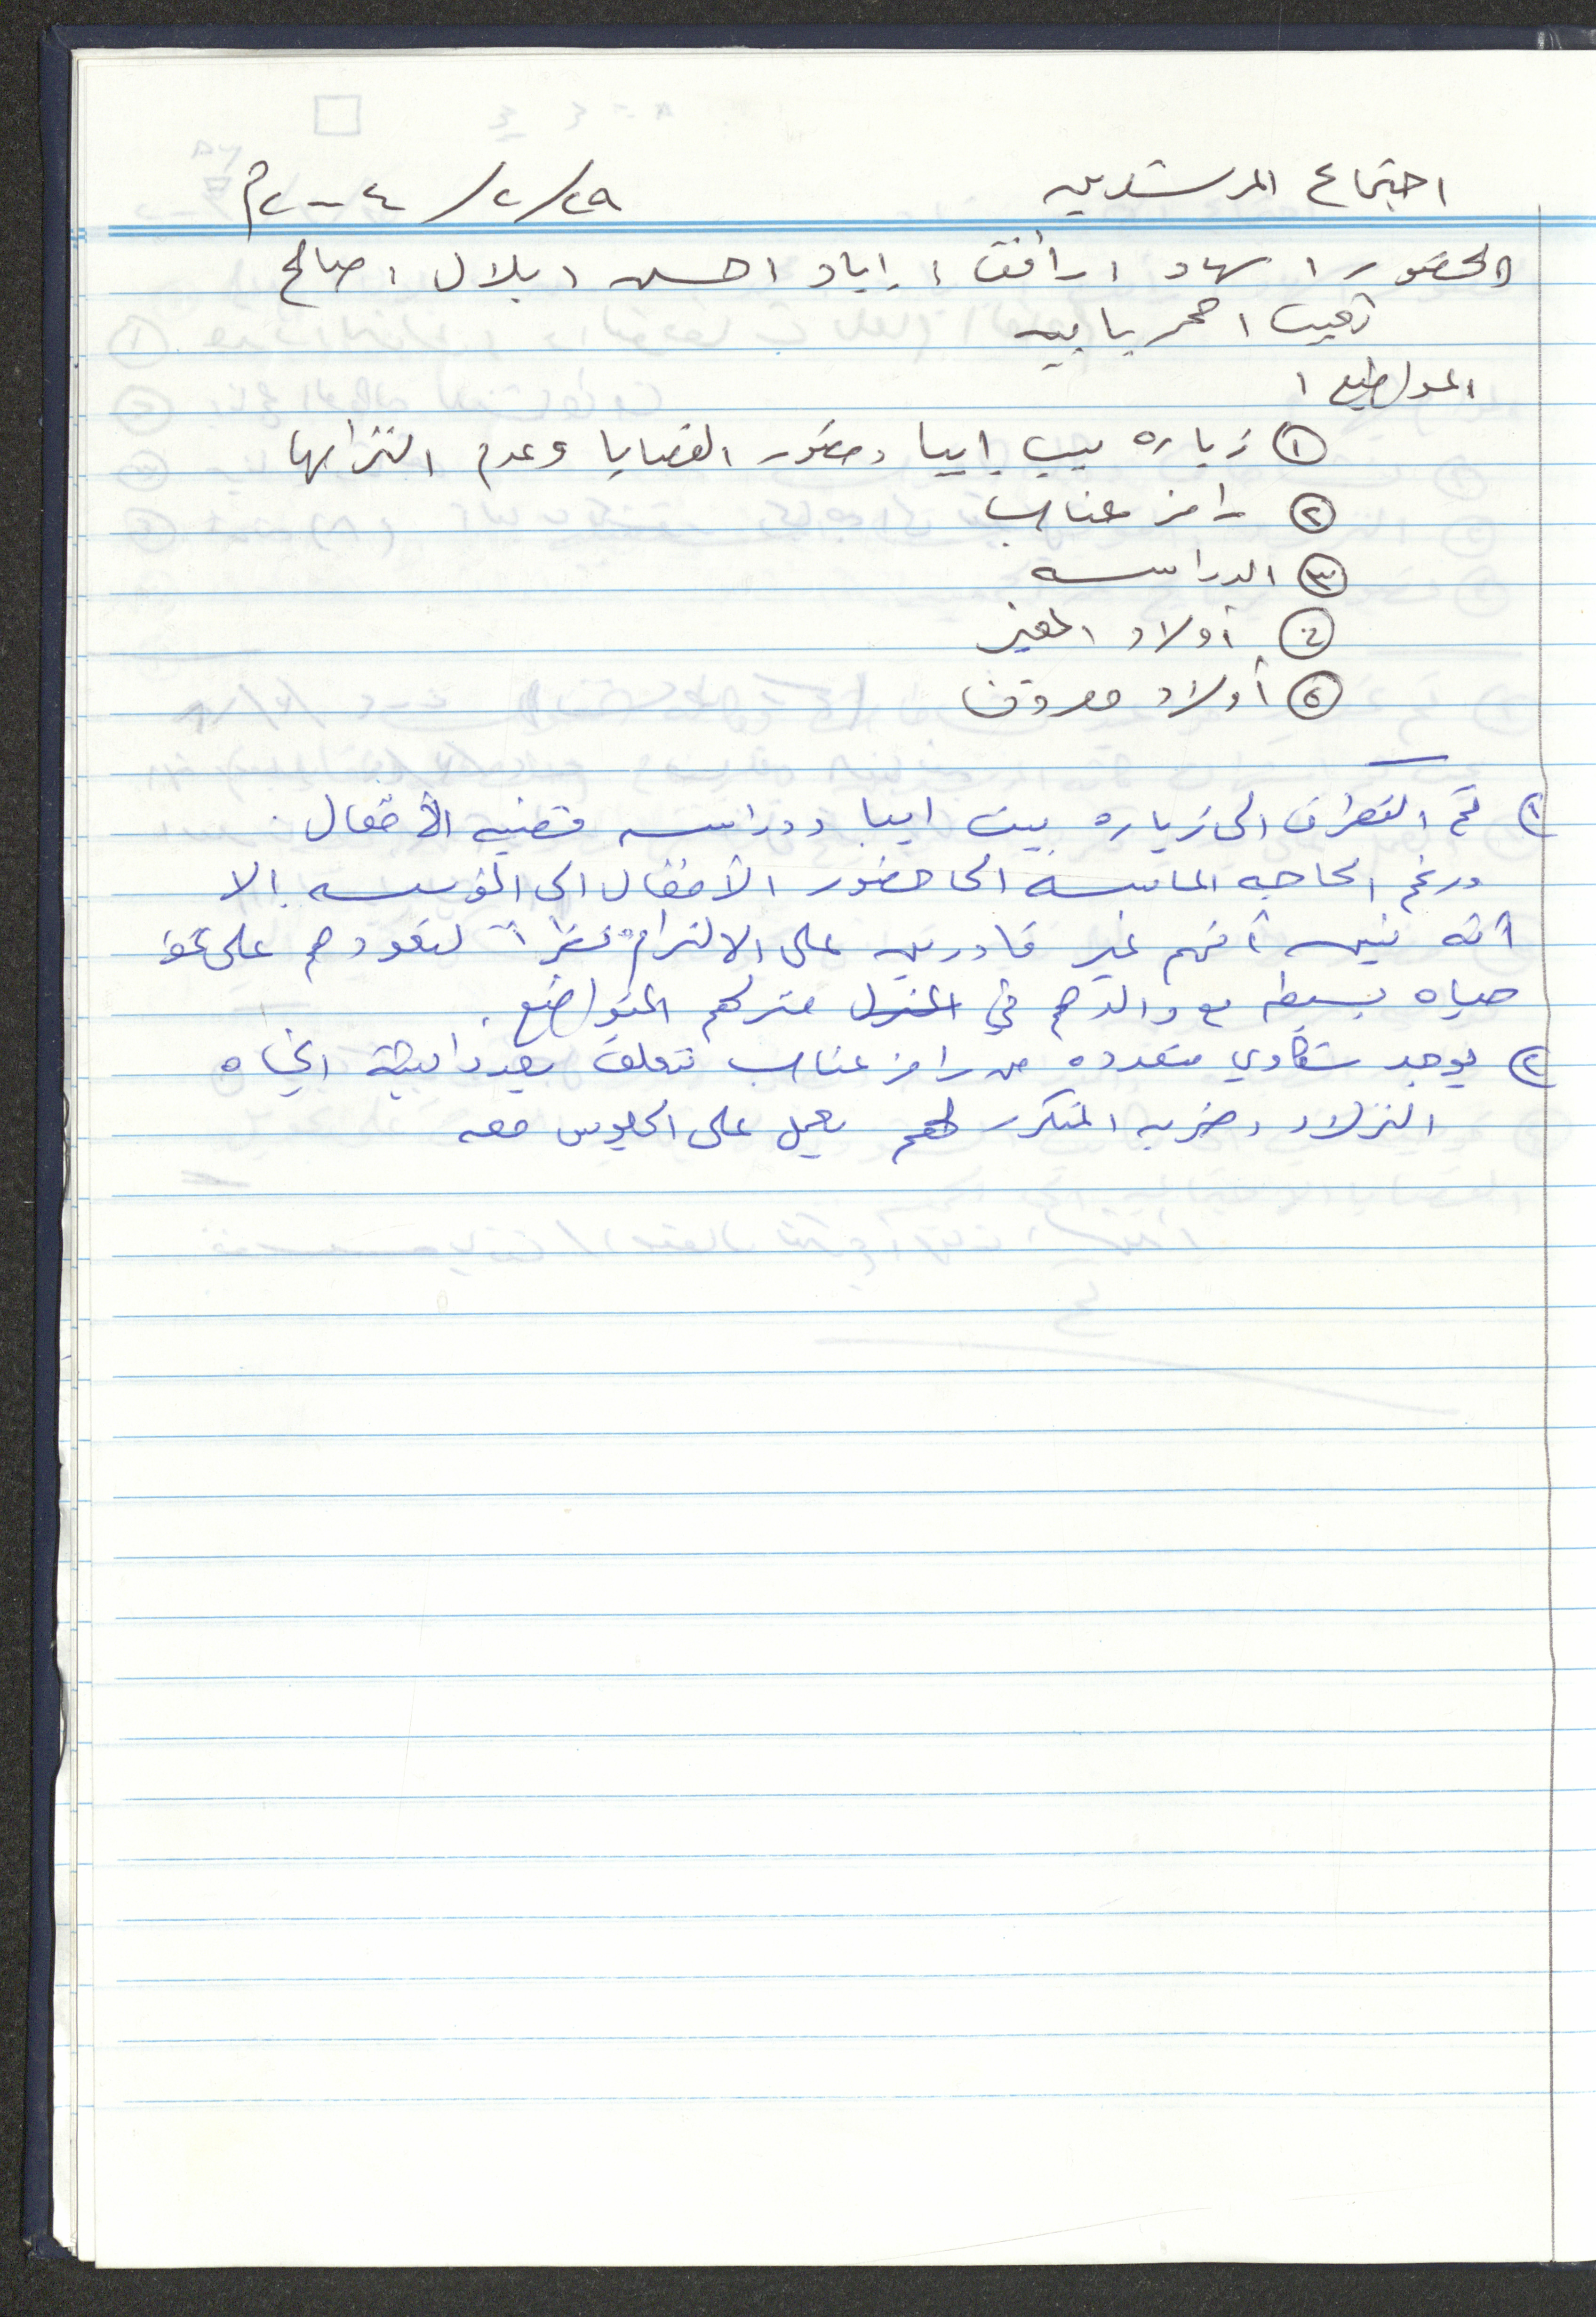 اجتماع المرشدين ٢٩/٢/٢٠٠٤م
الحضور / سهاد / رأفت / إياد / حسن / بلال / صالح
نقيب / محمد بابيه
المواضيع /
① زياره بيت إيبا وحضور القضايا وعدم التزامها
② رامز عناب
③ الدراسه
④ أولاد الهيز
⑤ أولاد معروف
١) تم التطرق الى زياره بيت ايبا ودراسه قضيه الأطفال .
ورغم الحاجه الماسه الى حضور الأطفال الى المؤسسه إلا
أنه تبين أنهم غير قادرين على الالتزام نظراً لتعودهم على نمط
حياه بسيط مع والدهم في المنزل منزلهم المتواضع .
٢) يوجد شكاوي متعدده من رامز عناب تتعلق بعدوانيته اتجاه
النزلاء وضربه المتكرر لهم يعمل على الجلوس معه